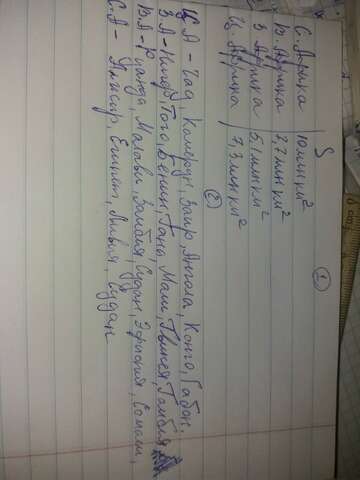 ①
S
С. Африка 10 млн км²
В. Африка 2,7 млн км²
З. Африка 5,1 млн км²
Ц. Африка 7,3 млн км²
②
ЦА - Чад, Камерун, Заир, Ангола, Конго, Габон,
ЗА - Нигер, Того, Бенин, Гана, Мали, Гвинея, Гамбия
ВА - Руанда, Малави, Замбия, Судан, Эфиопия, Сомали,
С.А - Алжир, Египет, Ливия, Судан